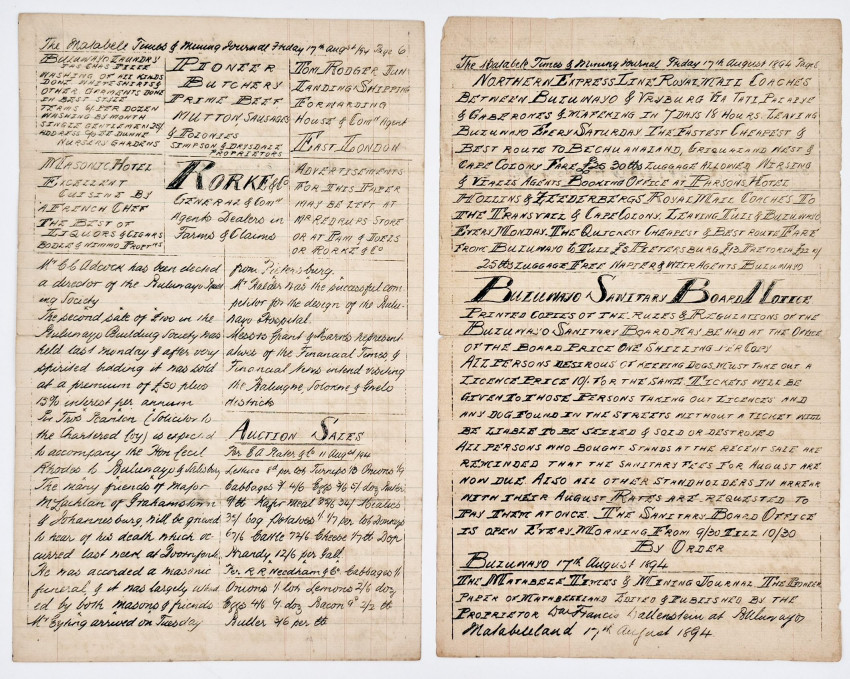 The Matabele Times & Mining Journal Friday 17th Augst 94 Page 6
BULUWAYO LAUNDRY
WASHING OF ALL KINDS
DONE WHITE SHIRTS &
OTHER GARMENTS DONE
IN BEST STYLE
TERMS 6/ PER DOZEN
WASHING BY MONTH
SINGLE GENTLEMEN 25/
ADDRESS C/O DUNNE
NURSERY GARDENS
PIONEER
BUTCHERY
PRIME BEEF
MUTTON SAUSAGES
& POLONIES
SIMPSON & DRYSDALE
PROPRIETORS
TOM RODGER JUN
LANDING SHIPPING
FORWARDING
HOUSE & Comn AGENT
EAST LONDON
MASONIC HOTEL
EXCELLENT
CUISINE BY
A FRENCH CHEF
THE BEST OF
LIQUORS & CIGARS
BODLE & NIMMO PROPTRS
RORKE & Co
GENERAL & Comn
Agents Dealers in
Farms & Claims
ADVERTISEMENTS
FOR THIS PAPER
MAY BE LEFT AT
MR REDRUPS STORE
OR AT
OR RORKE & Co
Mr C C Adcock has been elected
a director of the Buluwayo
ing Society
The second sale of £100 in the
Buluwayo Building Society was
held last Monday & after very
spirited bidding it was sold
at a premium of £50 plus
15% interest per annum
Scanlon (Solicitor to
the Chartered Coy) is expected
to accompany the Hon Cecil
Rhodes to Buluwayo & Salisbury
The many friends of Major
McLachlan of Grahamstown
& Johannesburg will be grieved
to hear of his death which oc
curred last week at Doornfont.
He was accorded a masonic
funeral & it was largely attend
ed by both masons & friends
Mr Eyting arrived on Tuesday
from Pietersburg.
was the successful com
petitor for the design of the Bulu-
wayo Hospital.
Messrs Grant & Harris represent
atives of the Financial Times &
Financial News intend visiting
the Belingwe, Selukwe & Gwelo
districts
AUCTION SALES
Per E A Slater & Co 11 Augst 94
Lettuce 8d per lot Turnips 1/3 Onions 1/9
Cabbages 4/6 Eggs 3/6 doz Butter
lb Kafir Meal 33/6 34/ Mealies
35/ bag Potatoes 1/ 1/7 per lot
67/6 Cattle 77/6 Cheese lb Dop
Brandy 12/6 per Gall.
Per R R Needham & Co Cabbages 1/
Onions 1/ lot Lemons 2/6 doz
Eggs 4/6 doz Bacon 2/2 lb
Butter 3/6 per lb
The Matabele Times & Mining Journal Friday 17th August 1894 Page
NORTHERN EXPRESS LINE ROYAL MAIL COACHES
BETWEEN BULUWAYO & VRYBURG VIA TATI, PALAPYE
& GABERONES & MAFEKING IN 7 DAYS 18 HOURS. LEAVING
BULUWAYO EVERY SATURDAY THE FASTEST CHEAPEST &
BEST ROUTE TO BECHUANALAND, GRIQUALAND WEST &
CAPE COLONY FARE £26 30lbs LUGGAGE ALLOWED NIRSING
& VIALLS AGENTS BOOKING OFFICE AT PARSONS HOTEL
HOLLINS & ZEEDERBERGS ROYAL MAIL COACHES TO
THE TRANSVAAL & CAPE COLONY. LEAVING TULI & BULUWAYO
EVERY MONDAY. THE QUICKEST CHEAPEST & BEST ROUTE FARE
FROM BULUWAYO TO TULI £8 PIETERSBURG £13 PRETORIA
25lbs LUGGAGE FREE NAPIER & WEIR AGENTS BULUWAYO
BULUWAYO SANITARY BOARD NOTICE
PRINTED COPIES OF THE RULES & REGULATIONS OF THE
BULUWAYO SANITARY BOARD MAY BE HAD AT THE OFFICE
OF THE BOARD PRICE ONE SHILLING PER COPY
ALL PERSONS DESIROUS OF KEEPING DOGS, MUST TAKE OUT A
LICENCE PRICE 10/ FOR THE SAME. TICKETS WILL BE
GIVEN TO THOSE PERSONS TAKING OUT LICENCES AND
ANY DOG FOUND IN THE STREETS WITHOUT A TICKET WILL
BE LIABLE TO BE SEIZED & SOLD OR DESTROYED
ALL PERSONS WHO BOUGHT STANDS AT THE RECENT SALE ARE
REMINDED THAT THE SANITARY FEES FOR AUGUST ARE
NOW DUE. ALSO ALL OTHER STANDHOLDERS IN ARREAR
WITH THEIR AUGUST RATES ARE REQUESTED TO
PAY THEM AT ONCE. THE SANITARY BOARD OFFICE
IS OPEN EVERY MORNING FROM 9/30 TILL 10/30
BY ORDER
BULUWAYO 17TH AUGUST 1894
THE MATABELE TIMES & MINING JOURNAL THE PIONEER
PAPER OF MATABELELAND EDITED & PUBLISHED BY THE
PROPRIETOR Wm Francis Wallenstein at Buluwayo
Matabeleland 17th August 1894